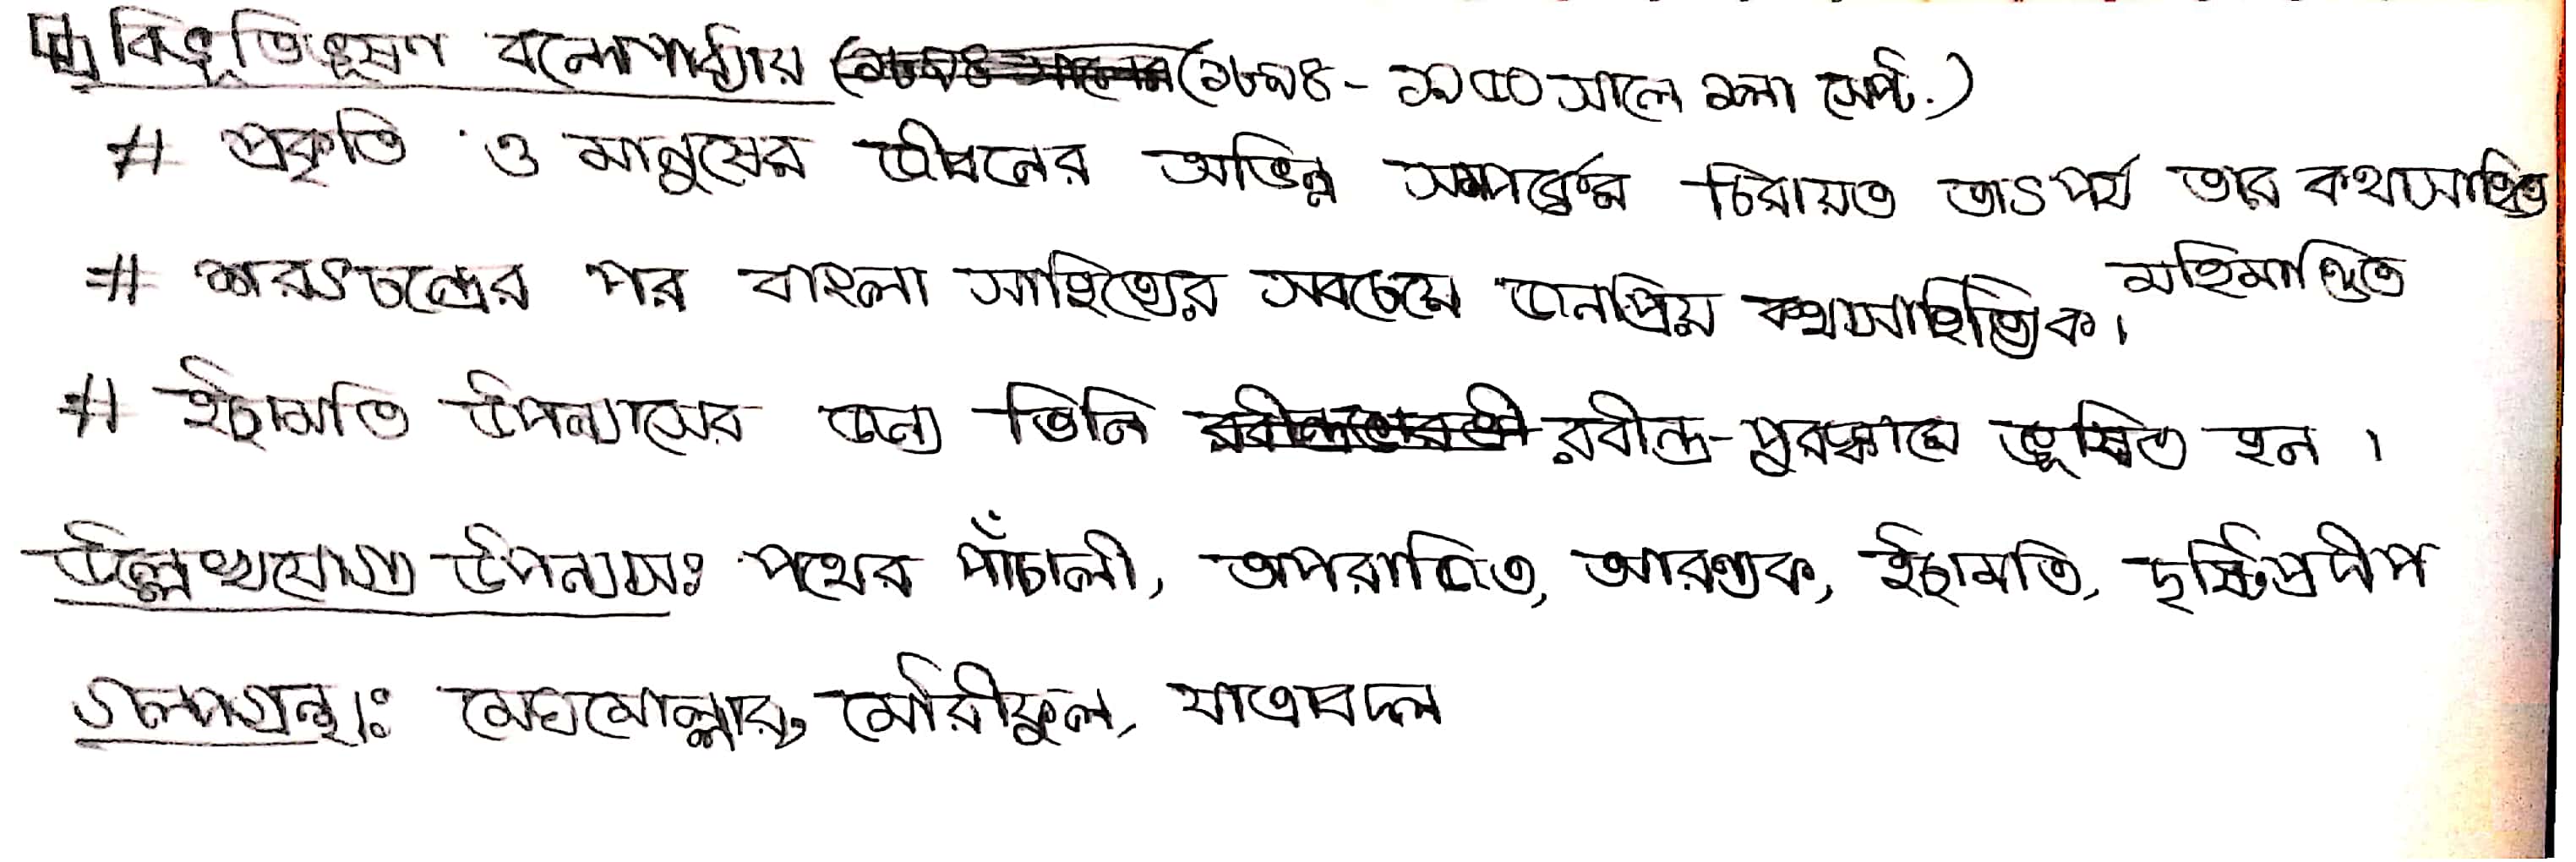 বিভূতিভূষণ বন্দোপাধ্যায় (১৮৯৪ - ১৯৫০ সালে ১লা সেপ্ট.)
# প্রকৃতি ও মানুষের জীবনের অভিন্ন সম্পর্কের চিরায়ত তাৎপর্য তার কথাসাহিত্য
মহিমান্বিত
# শরৎচন্দ্রের পর বাংলা সাহিত্যের সবচেয়ে জনপ্রিয় কথাসাহিত্যিক।
# ইছামতি উপন্যাসের জন্য তিনি রবীন্দ্র-পুরস্কারে ভূষিত হন ।
উল্লেখযোগ্য উপন্যাসঃ পথের পাঁচালী, অপরাজিত, আরণ্যক, ইছামতি, দৃষ্টিপ্রদীপ
গল্পগ্রন্থঃ মেঘমোল্লার, মৌরীফুল, যাত্রাবদল